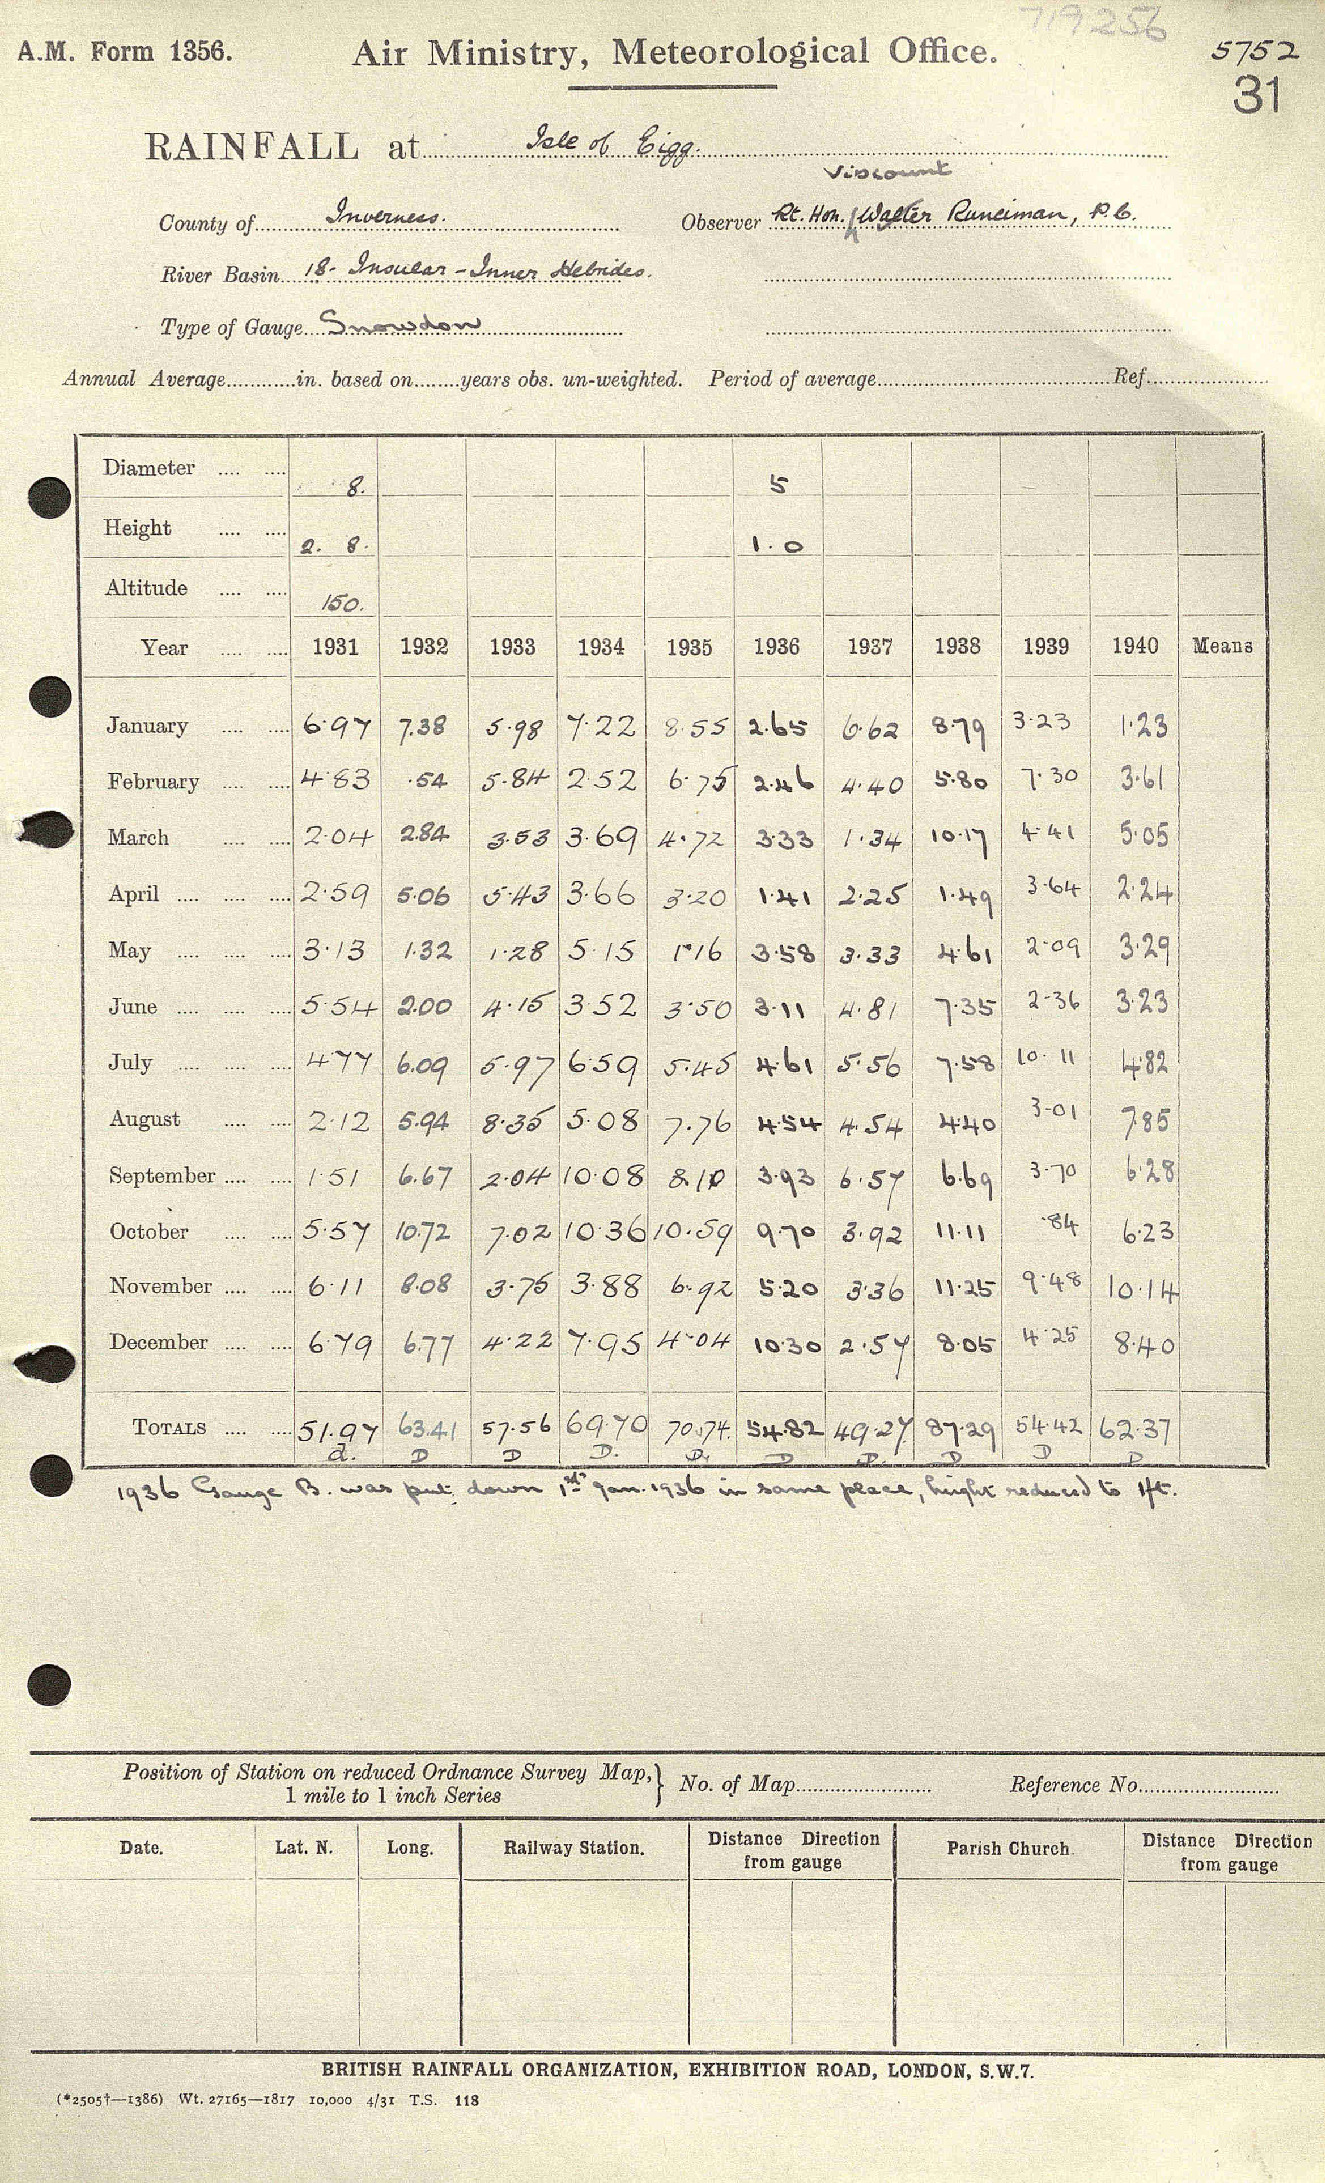 719256
A.M. Form 1356. Air Ministry, Meteorological Office. 5752
31
RAINFALL at Isle of Eigg.
Viscount
County of Inverness. Observer Rt. Hon. Walter Runciman, P.C.
River Basin 18. Insular - Inner Hebrides.
Type of Gauge Snowdon
Annual Average............in. based on........years obs. un-weighted. Period of average........................Ref...............
Diameter .... .... 8. 5
Height .... .... 2. 8. 1. 0
Altitude .... .... 150.
Year .... .... 1931 1932 1933 1934 1935 1936 1937 1938 1939 1940 Means
January .... .... 6.97 7.38 5.98 7.22 8.55 2.65 6.62 8.79 3.23 1.23
February .... .... 4.83 .54 5.84 2.52 6.75 2.46 4.40 5.80 7.30 3.61
March .... .... 2.04 2.84 3.53 3.69 4.72 3.33 1.34 10.17 4.41 5.05
April .... .... .... 2.59 5.06 5.43 3.66 3.20 1.41 2.25 1.49 3.64 2.24
May .... .... .... 3.13 1.32 1.28 5.15 1.16 3.58 3.33 4.61 2.09 3.29
June .... .... .... 5.54 2.00 4.15 3.52 3.50 3.11 4.81 7.35 2.36 3.23
July .... .... .... 4.77 6.09 5.97 6.59 5.45 4.61 5.56 7.58 10.11 4.82
August .... .... 2.12 5.94 8.35 5.08 7.76 4.54 4.54 4.40 3.01 7.85
September .... .... 1.51 6.67 2.04 10.08 8.10 3.93 6.57 6.69 3.70 6.28
October .... .... 5.57 10.72 7.02 10.36 10.59 9.70 3.92 11.11 .84 6.23
November .... .... 6.11 8.08 3.75 3.88 6.92 5.20 3.36 11.25 9.48 10.14
December .... .... 6.79 6.77 4.22 7.95 4.04 10.30 2.57 8.05 4.25 8.40
TOTALS .... .... 51.97 63.41 57.56 69.70 70.74 54.82 49.27 87.29 54.42 62.37
d. D D D. D. D D. D D D
1936 Gauge B. was put down 1st Jan. 1936 in same place, height reduced to 1ft.
Position of Station on reduced Ordnance Survey Map, } No. of Map........................ Reference No........................
1 mile to 1 inch Series
Date. Lat. N. Long. Railway Station. Distance Direction Parish Church. Distance Direction
from gauge from gauge
BRITISH RAINFALL ORGANIZATION, EXHIBITION ROAD, LONDON, S.W.7.
(*2505†—1386) Wt. 27165—1817 10,000 4/31 T.S. 118